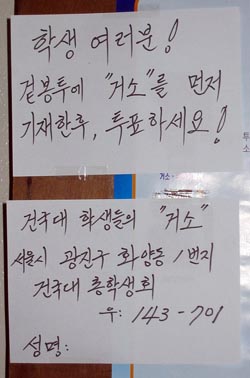 학생 여러분!
겉봉투에 "거소"를 먼저
기재한후, 투표하세요!
거소
투
소
건국대 학생들의 "거소"
서울시 광진구 화양동 1번지
건국대 총학생회
우: 143-701
성명: